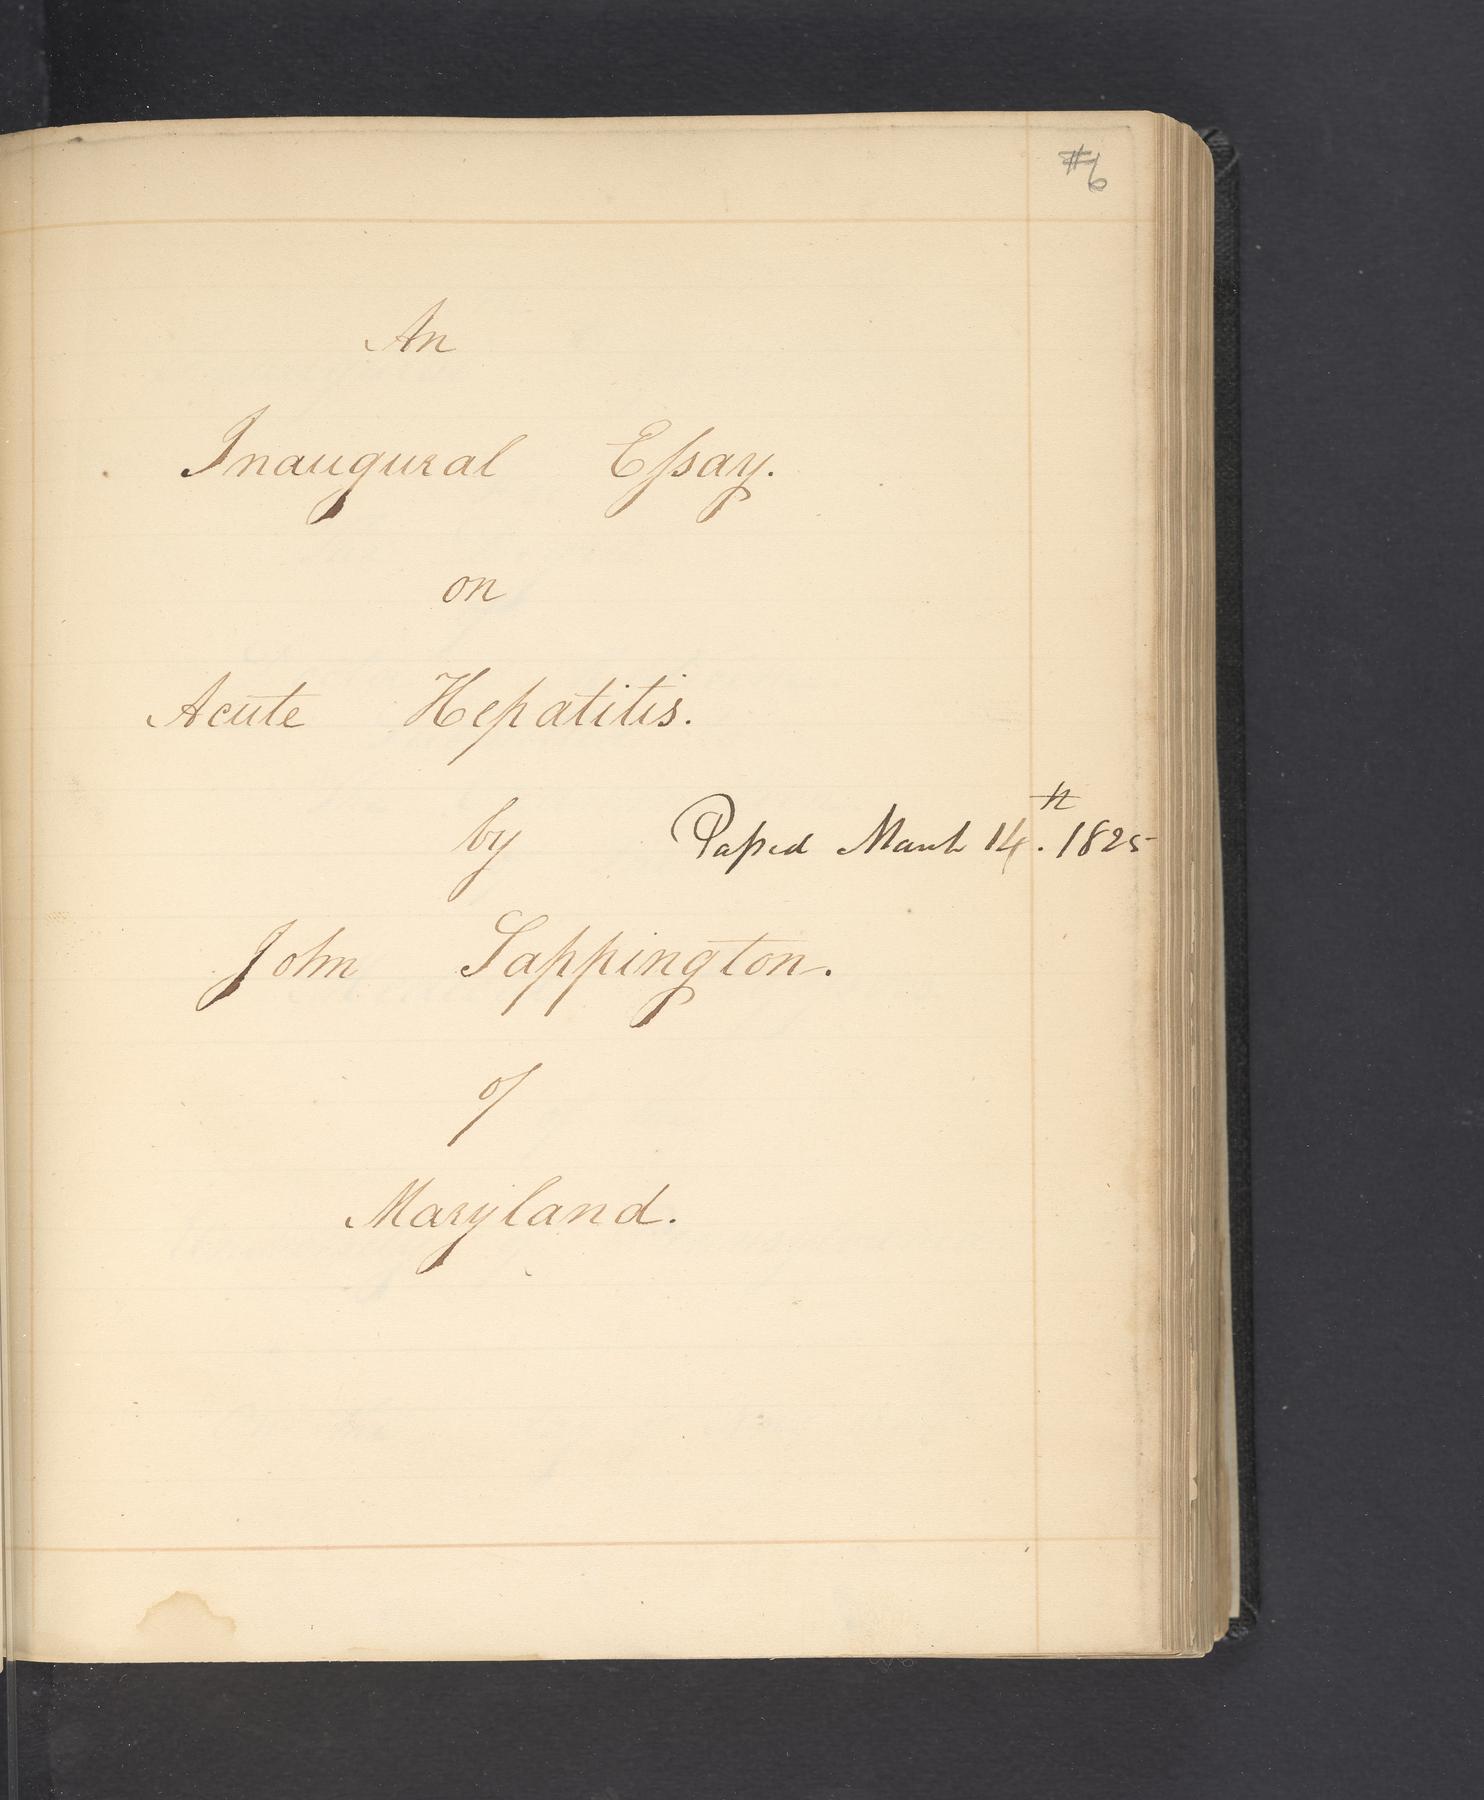 #6
An
Inaugural Eſsay.
on
Acute Hepatitis.
by Paſsed March 14th. 1825
John Sappington.
of
Maryland.